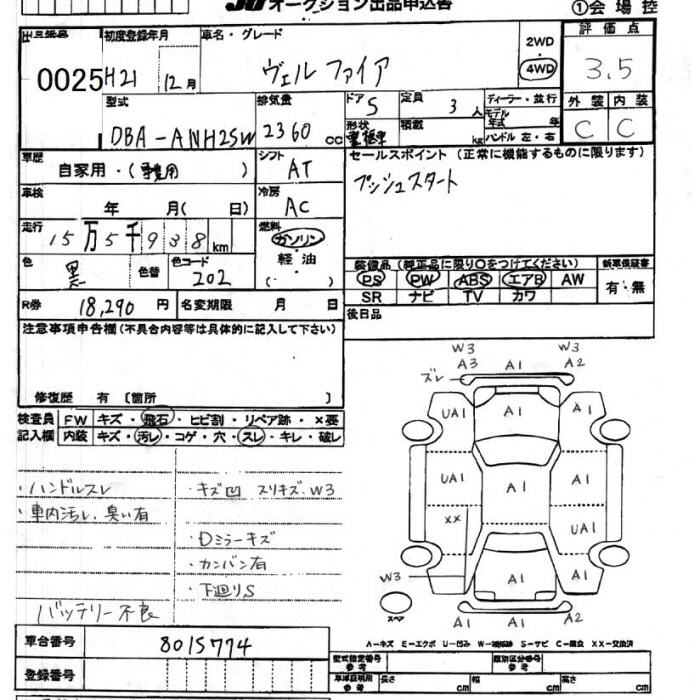 JU オークション出品申込書
①会場控
出品番号
0025
初度登録年月
H21 12月
車名・グレード
ヴェルファイア
2WD
4WD
評価点
3.5
型式
DBA-ANH25W
排気量
2360 cc
ドア
5
定員
3人
ディーラー・並行
モデル年式 年
ハンドル 左・右
形状
積載 kg
外装 内装
C C
車歴
自家用・( )
シフト
AT
セールスポイント (正常に機能するものに限ります)
プッシュスタート
車検
年 月( 日)
冷房
AC
走行
15万5千938km
燃料
ガソリン
・
軽油
( )
色
黒
色替
色コード
202
装備品 (純正品に限り○をつけてください)
新車保証書
PS PW ABS エアB AW
SR ナビ TV カワ
有・無
R券
18,290 円
名変期限 月 日
後日品
注意事項申告欄(不具合内容等は具体的に記入して下さい)
修復歴 有 〔箇所 〕
検査員記入欄
FW キズ・飛石・ヒビ割・リペア跡・×要
内装 キズ・汚レ・コゲ・穴・スレ・キレ・破レ
・ハンドルスレ
・車内汚レ、臭い有
バッテリー不良
・キズ凹 スリキズ、W3
・Dミラーキズ
・カンバン有
・下廻りS
W3 W3
ズレ A3 A1 A2
UA1 A1 A1
UA1 A1 A1
XX UA1
W3 A1 A1
A1 A1 A2
スペア
A-キズ E-エクボ U-凹み W-補修跡 S-サビ C-腐食 XX-交換済
車台番号
8015774
登録番号
型式指定番号
参考
類別区分番号
参考
車庫証明用
参考
長さ cm
幅 cm
高さ cm